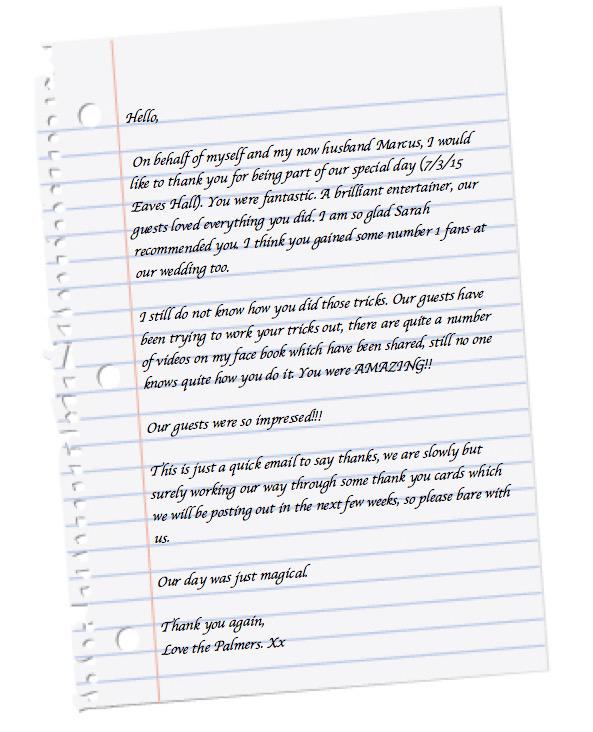 Hello,
On behalf of myself and my now husband Marcus, I would
like to thank you for being part of our special day (7/3/15
Eaves Hall). You were fantastic. A brilliant entertainer, our
guests loved everything you did. I am so glad Sarah
recommended you. I think you gained some number 1 fans at
our wedding too.
I still do not know how you did those tricks. Our guests have
been trying to work your tricks out, there are quite a number
of videos on my face book which have been shared, still no one
knows quite how you do it. You were AMAZING!!
Our guests were so impressed!!!
This is just a quick email to say thanks, we are slowly but
surely working our way through some thank you cards which
we will be posting out in the next few weeks, so please bare with
us.
Our day was just magical.
Thank you again,
Love the Palmers. Xx